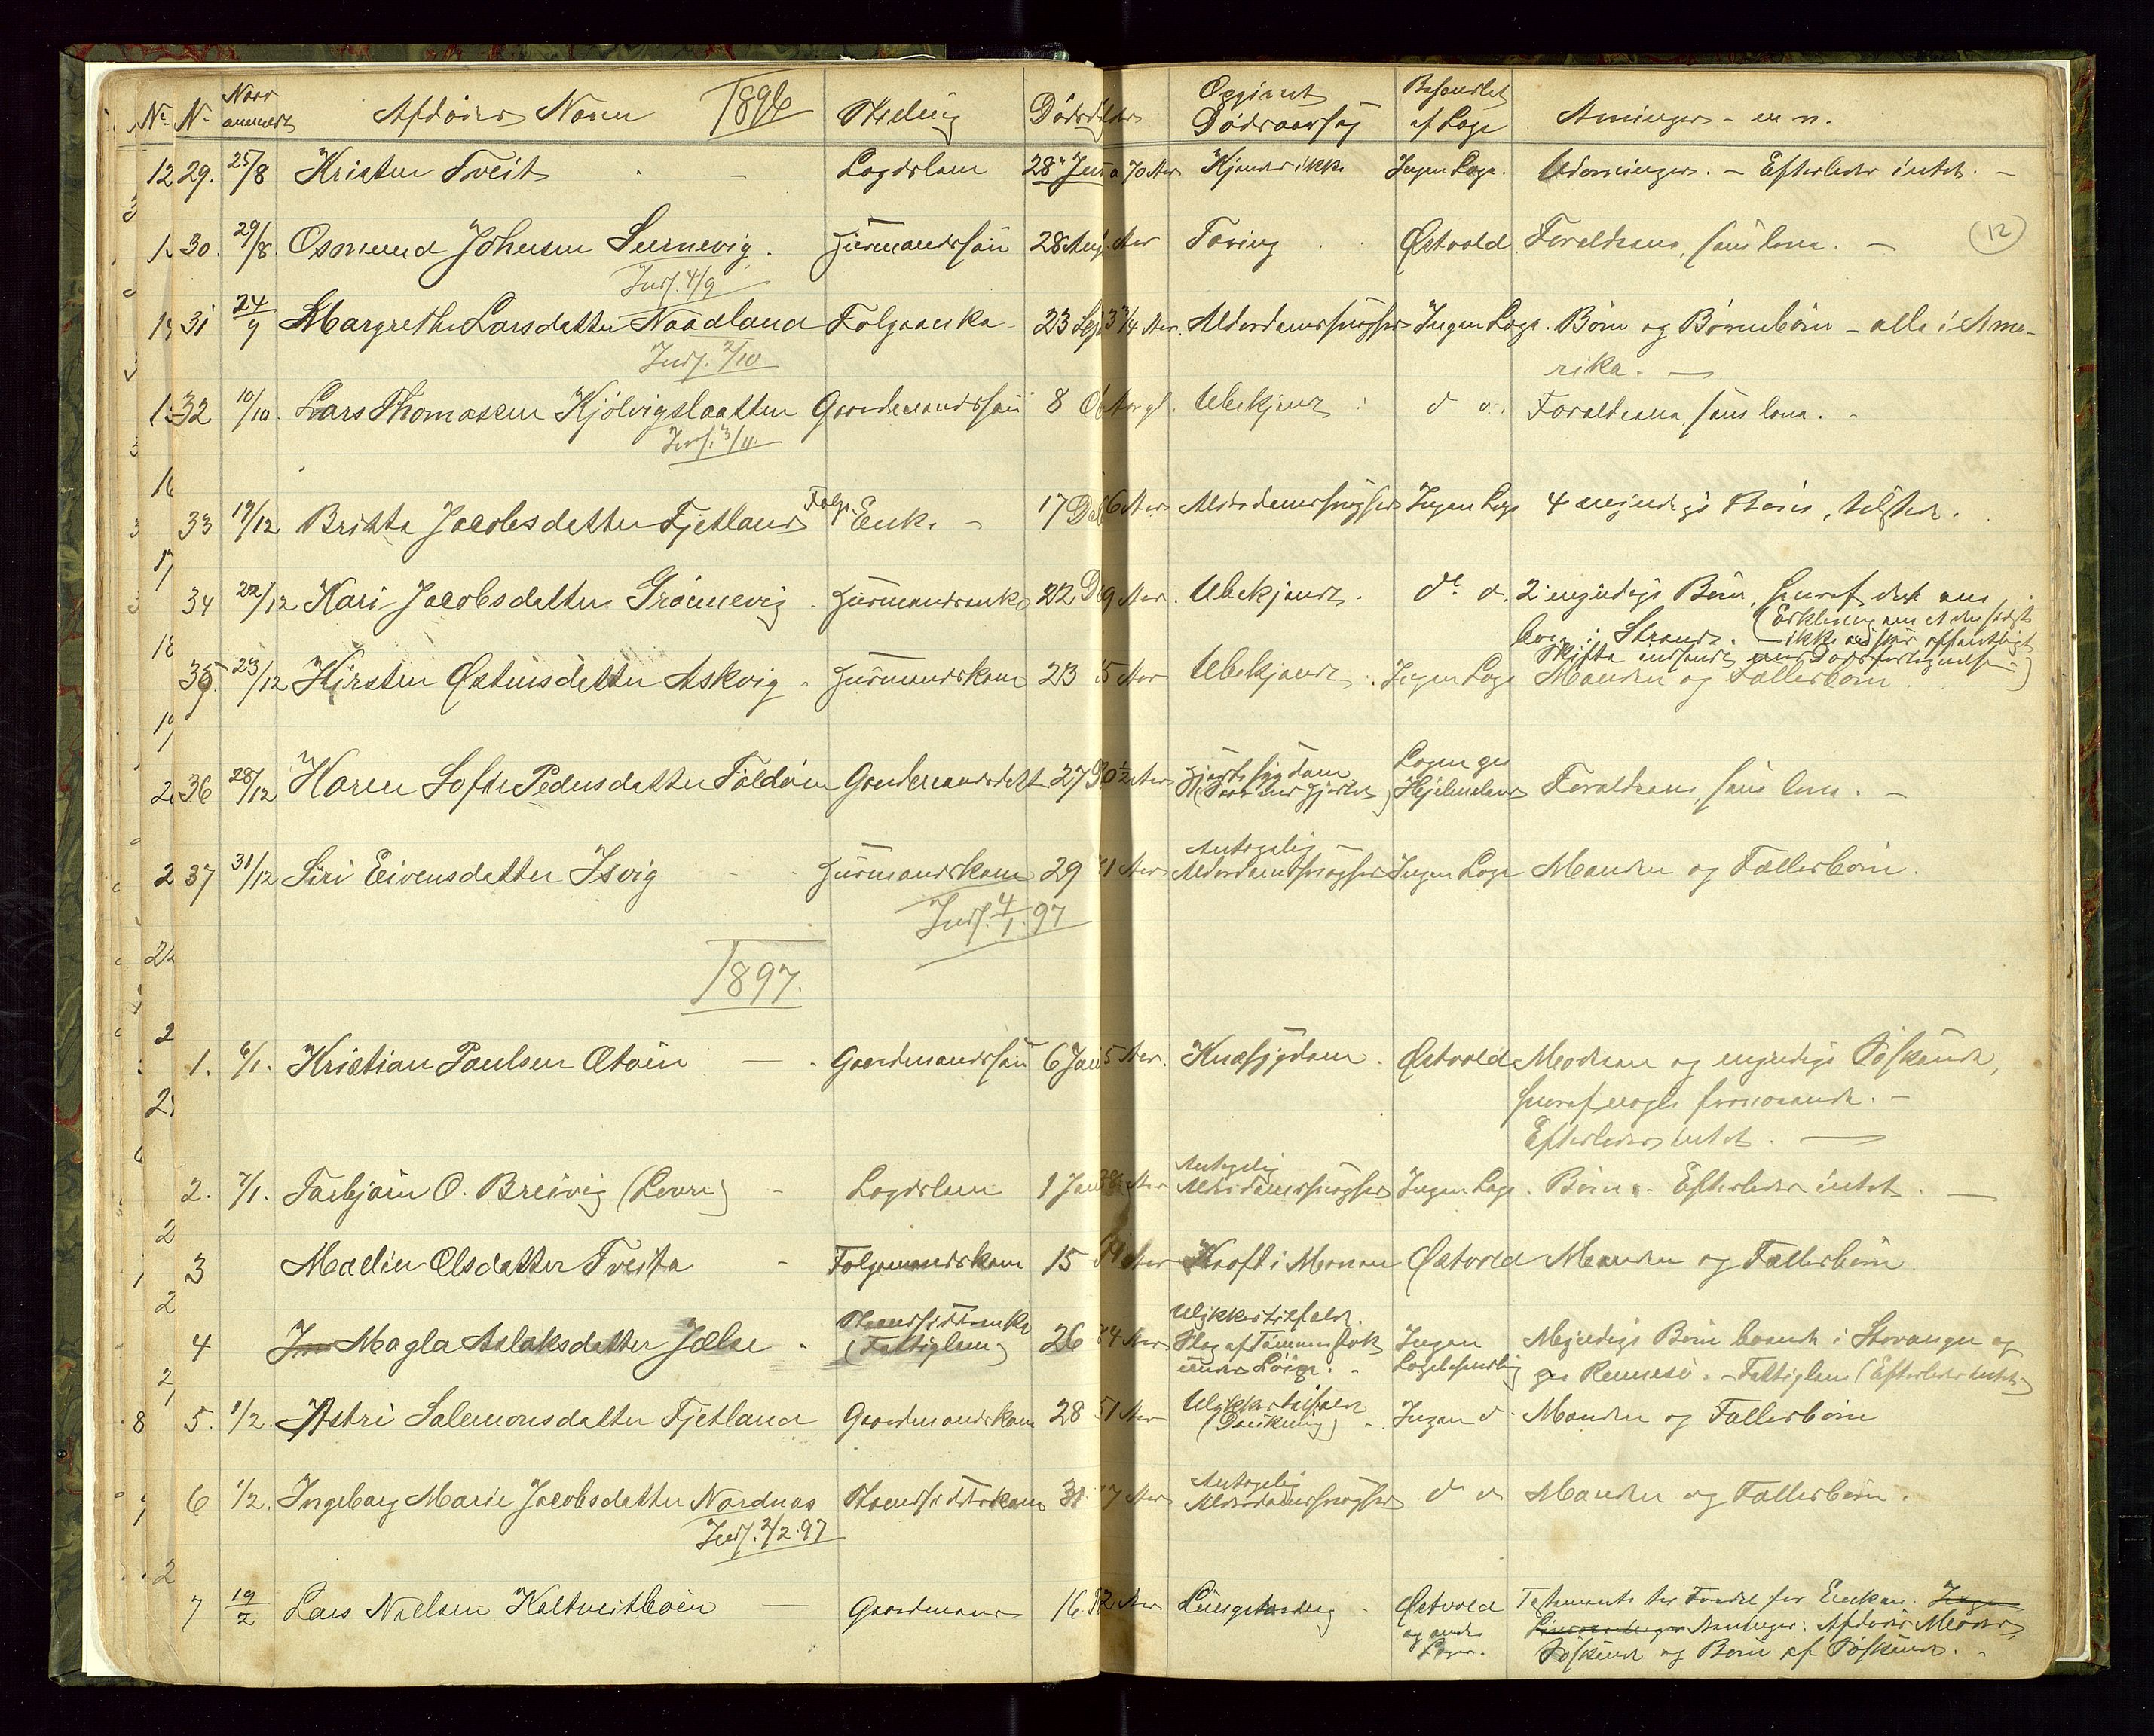 No. N. Naar anmeldt Afdødes Navn 1896 Stilling Døds Alder Opgivet Dødsaarsag Behandlet af Læge Arvinger - m. m.
12 29. 25/8 Kristen Tveit - Lægdslem 28 Juni 70 Aar Kjendes ikke Ingen Læge. Udarvinger. - Efterlader intet. -
30. 29/8. Osmund Johnsen Surnevig. Huusmandssøn 28 Aug. Aar Tæring Østvold Forældrene, som leve. - 12
Indf. 4/9
31 24/9 Margrethe Larsdatter Naadland Folgeenke - 23 Sept 3/4 Aar. Alderdomssvaghed Ingen Læge. Børn og Børnebørn - alle i Ame-
Indf. 2/10 rika. -
32 10/10. Lars Thomasen Kjølvigslaatten Gaardmandssøn 8 Aar gl. Ubekjendt d o. Forældrene, som leve. -
Indf. 3/11.
16
33 19/12 Britta Jacobsdatter Fjetland Folge Enke - 17 Aar Alderdomssvaghed Ingen Læge 4 myndige Børn, tilstede.
34 22/12 Kari Jacobsdatter Grønnevig - Huusmandsenke 22 Aar. Ubekjendt. do. o. 2 myndige Børn, hvoraf det ene
18 bor i Strand. (Erklæring om at der
ikke offentligt
Skifte
35. 23/12 Kirsten Østensdatter Askvig - Huusmandskone 23 5 Aar Ubekjendt. Ingen Læge Manden og Fællesbørn.
36 28/12 Karen Sofie Pedersdatter Foldøen Gaardmandsdatter 27 1/2 Aar Hjertesygdom Lægen paa Hjelmeland Forældrene, som leve. -
37 31/12 Siri Eivensdatter Isvig - Huusmandskone 29 Aar Antagelig Alderdomssvaghed Ingen Læge Manden og Fællesbørn.
Indf. 4/1. 97
1897.
1. 6/1. Kristian Paulsen - Gaardmandssøn 6 Jan 5 Aar. Knæsygdom. Østvold Moderen og myndige Søskende,
hvoraf nogle fraværende. -
Efterlader intet. -
2. 7/1. Torbjørn O. Breivig - Lægdslem 1 Jan Aar Antagelig Alderdomssvaghed Ingen Læge. Børn. - Efterlader intet. -
3 Malin Olsdatter Tveita - Folgemandskone 15 Aar Kræft i Maven Østvold Manden og Fællesbørn.
4 Magla Aslaksdatter Jælse. Strandsidderenke (Fattiglem) 26 Aar Ulykkestilfælde. Slag af Tømmerstok Ingen Lægebehandling Myndige Børn boende i Stavanger og
paa Rennesø. - Fattiglem (Efterlader intet)
5. 1/2. Astri Salemonsdatter Fjetland Gaardmandskone 28 51 Aar Ulykkestilfælde (Drukning) Ingen d. Manden og Fællesbørn
6 1/2. Ingeborg Marie Jacobsdatter Nordnæs Strandsidderkone 31 Aar Antagelig Alderdomssvaghed d o Manden og Fællesbørn.
Indf. 2/2. 97
7 19/2 Lars Nielsen Kaltveitbøen - Gaardmand 16. Aar Lungebetændelse. Østvold og andre Læger. Testamente til Fordel for Enken.
Arvinger: Afdødes Moder,
Søskende og Børn af Søskende.